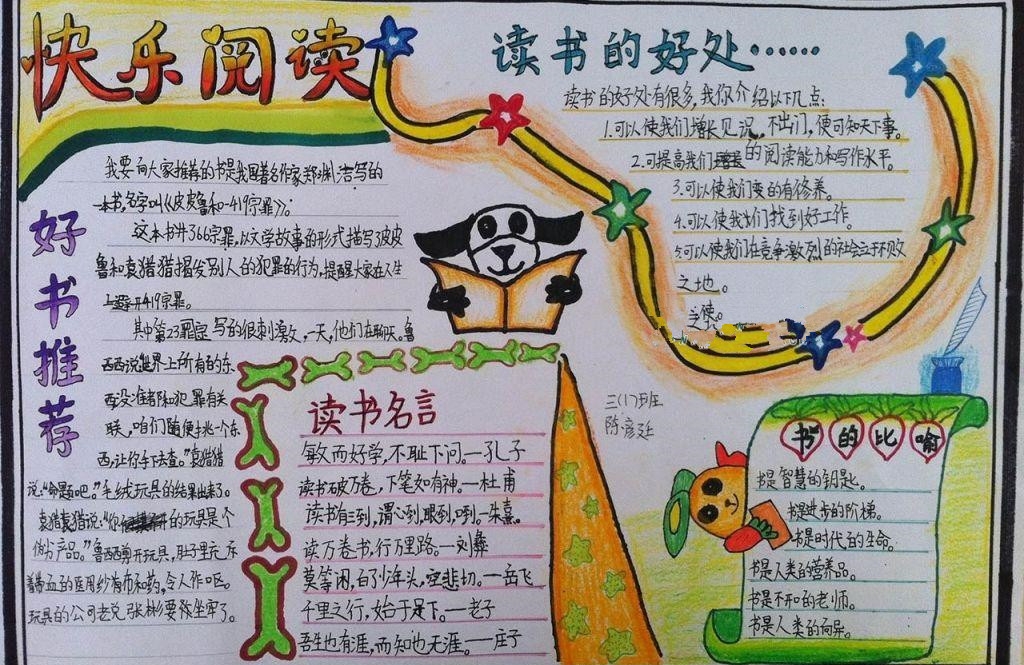 快乐阅读
好书推荐
我要向大家推荐的书是我国著名作家郑渊洁写的
一本书,名字叫《皮皮鲁和419宗罪》。
这本书共366宗罪,以文学故事的形式描写皮皮
鲁和袁猎猎揭发别人的犯罪的行为,提醒大家在人生
上避开419宗罪。
其中第23罪写的很刺激,一天,他们在聊天。鲁
西西说世界上所有的东
西没准都和犯罪有关
联,咱们随便挑一个东
西,让你手下去查。"袁猎猎
说:"命题吧。"毛绒玩具的结果出来了。
袁猎猎说:"你的玩具是个
伪劣产品。"鲁西西剪开玩具,肚子里充
带血的医用纱布和药,令人作呕。
玩具的公司老总张彬要 坐牢了。
读书名言
敏而好学,不耻下问。—孔子
读书破万卷,下笔如有神。—杜甫
读书有三到,谓心到,眼到,口到。—朱熹。
读万卷书,行万里路。—刘彝
莫等闲,白了少年头,空悲切。—岳飞
千里之行,始于足下。—老子
吾生也有涯,而知也无涯。——庄子
读书的好处……
读书的好处有很多,我你介绍以下几点:
1.可以使我们增长见识,不出门,便可知天下事。
2.可提高我们的阅读能力和写作水平。
3.可以使我们变的有修养。
4.可以使我们找到好工作。
5.可以使我们在竞争激烈的社会立于不败
之地。
三(1)班
陈彦廷
书的比喻
书是智慧的钥匙。
书是进步的阶梯。
书是时代的生命。
书是人类的营养品。
书是不和的老师。
书是人类的向异。